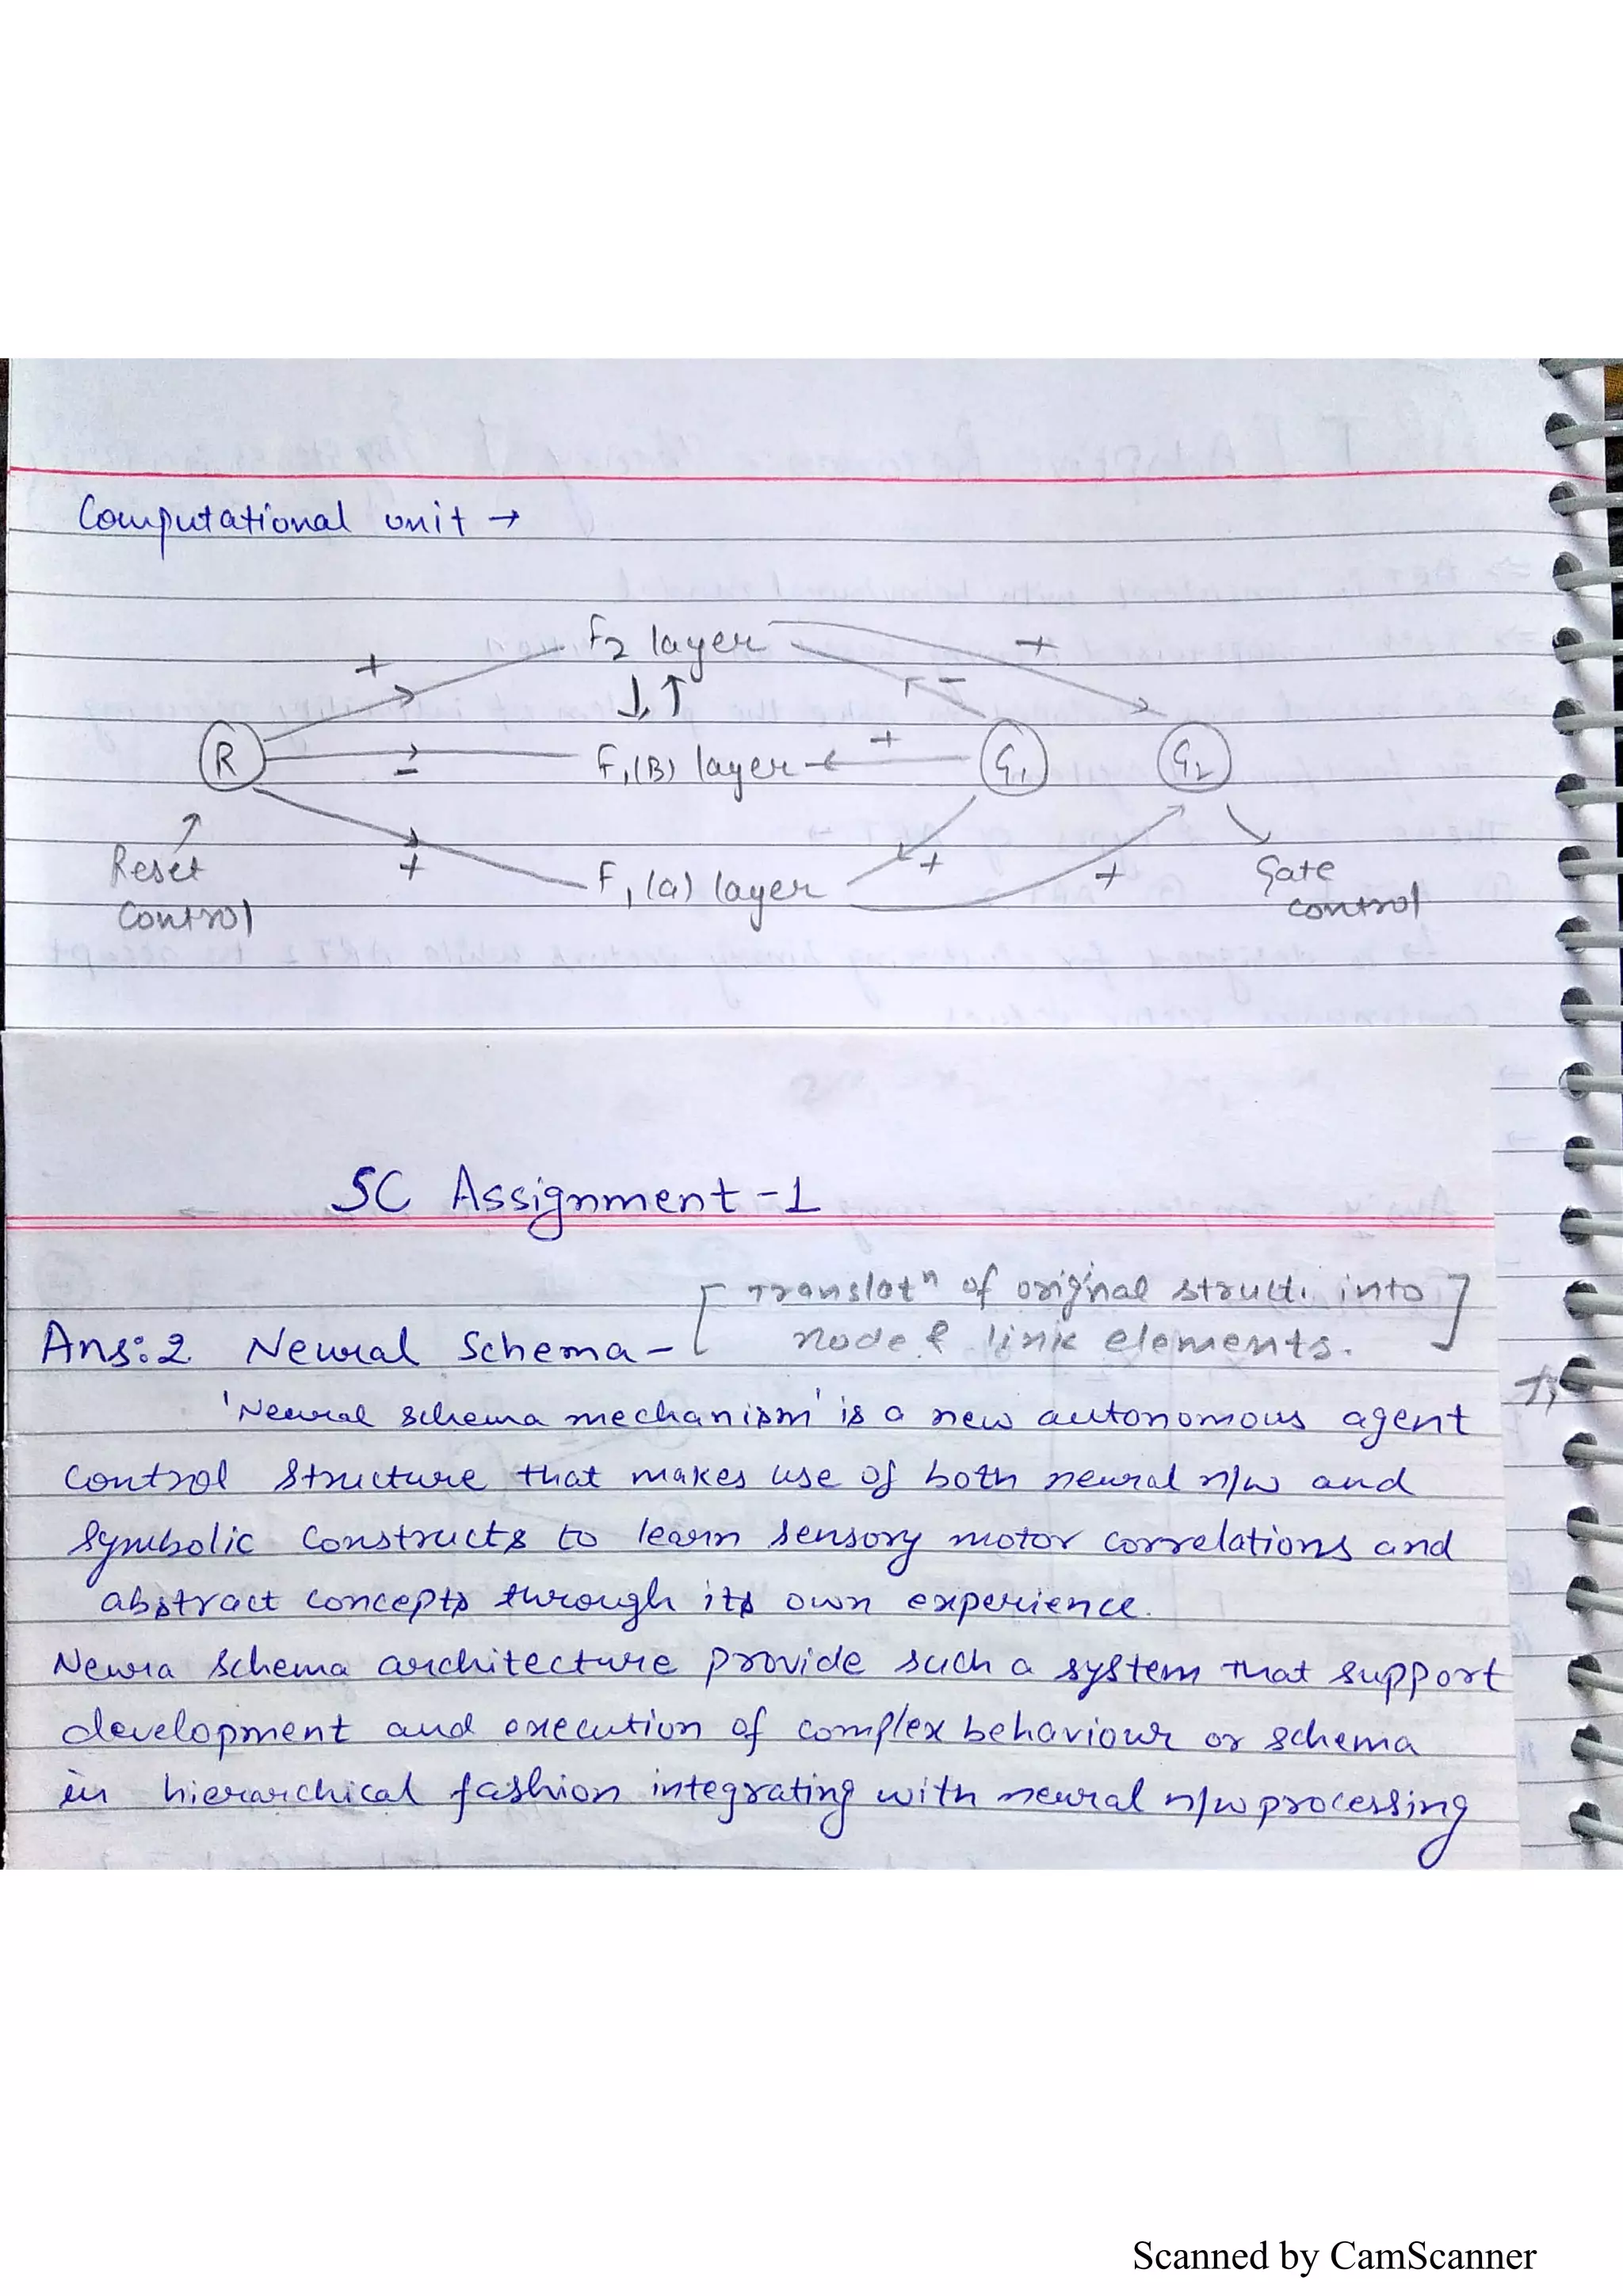 Computational unit →
F2 layer
+
+
↓↑
-
R
-
F1(B) layer
+
G1
G2
Reset
control
+
F1(a) layer
+
+
Gate
control
SC Assignment-1
[Translatn of original struct. into
node & link elements.]
Ans:2 Neural Schema-
'Neural schema mechanism' is a new autonomous agent
control structure that makes use of both neural n/w and
symbolic constructs to learn sensory motor correlations and
abstract concepts through its own experience.
Neura schema architecture provide such a system that support
development and execution of complex behaviour or schema
in hierarchical fashion integrating with neural n/w processing
Scanned by CamScanner